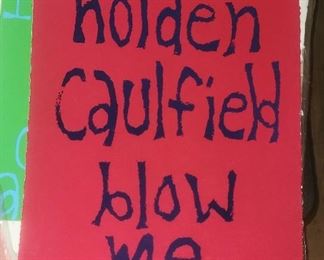 holden
caulfield
blow
me